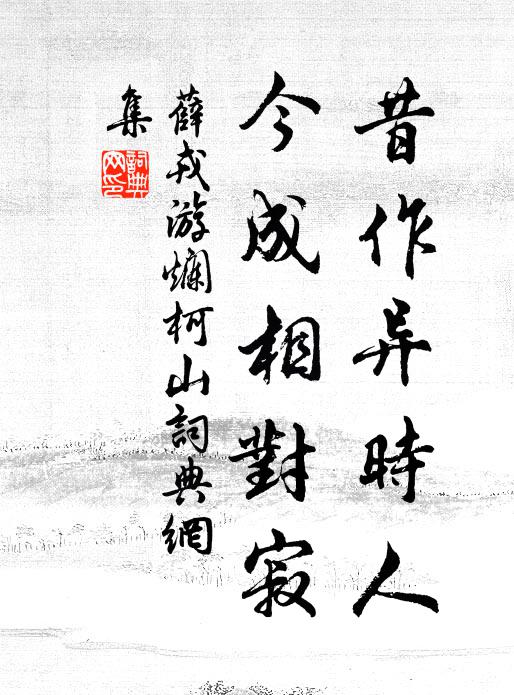 昔作异時人
今成相對寂
薛戎游爛柯山詞典網
集
詞典
网印